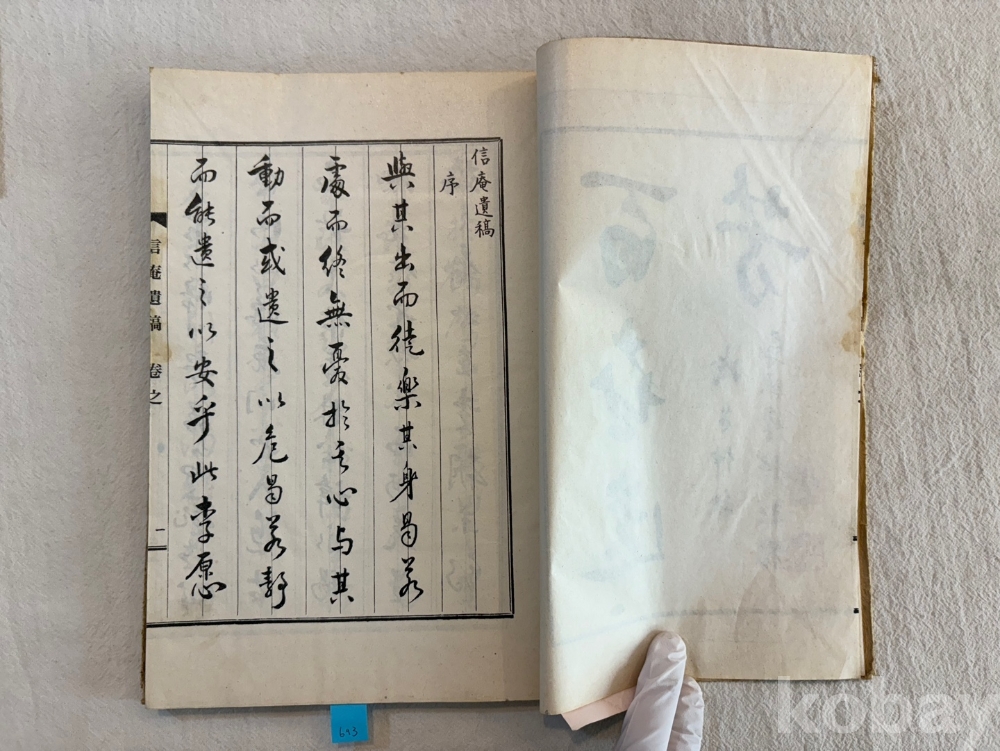 信庵遺稿
序
與其出而徒樂其身曷若
處而終無憂於其心与其
動而或遺之以危曷若靜
而能遺之以安乎此李愿
信庵遺稿 卷之
一
kobay